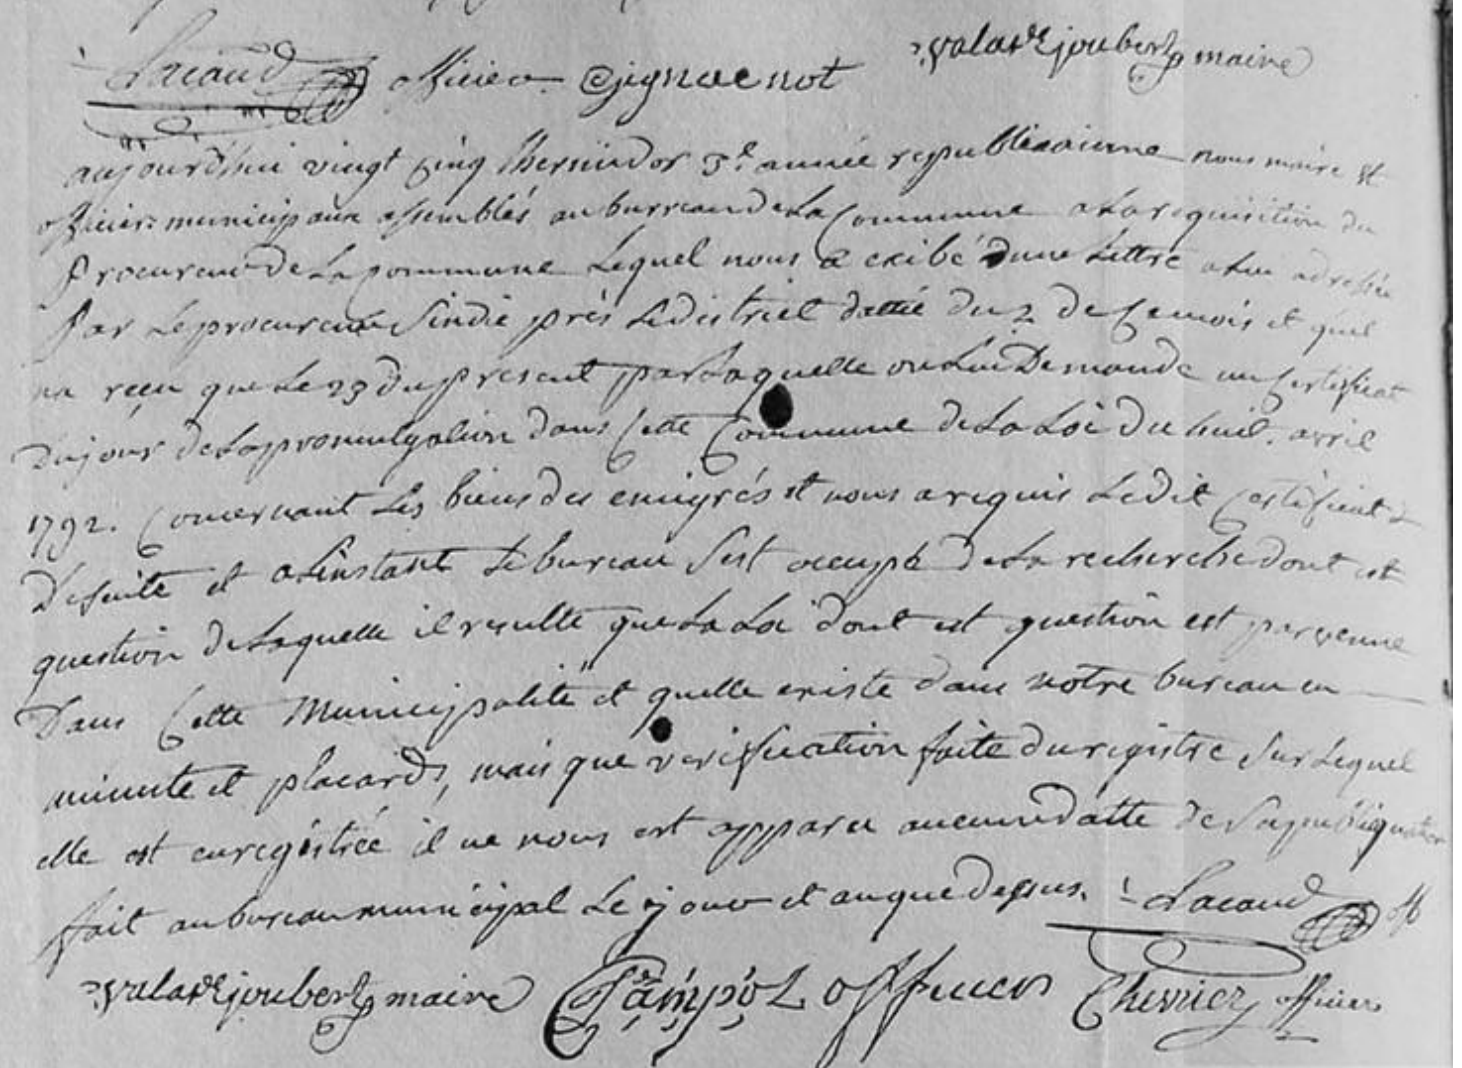 valade joubert maire
Lacaud officier Gignac not
aujourd'hui vingt cinq thermidor 3e. année republicainne nous maire et
officiers municipaux assemblés au bureau de la Commune a la requisition du
procureur de la commune lequel nous a exibé d'une lettre a lui adressée
par le procureur sindic près le district dattée du 2 de ce mois et quil
na reçu que le 23 du present par laquelle on lui demande un certificat
du jour de la promulgation dans cette Commune de la Loi du huit avril
1792. Concernant les biens des emigrés et nous a requis ledit certificat &
de suite et a linstant le bureau s'est occupé de la recherche dont est
question de laquelle il resulte que la Loi dont est question est parvenue
Dans cette Municipalité et quelle existe dans notre bureau en
minute et placards, mais que verification faite du registre sur lequel
elle est enregistrée il ne nous est apparu aucune datte de sa publiquation
fait au bureau municipal le jour et an que dessus. Lacaud off
valade joubert maire officier officier